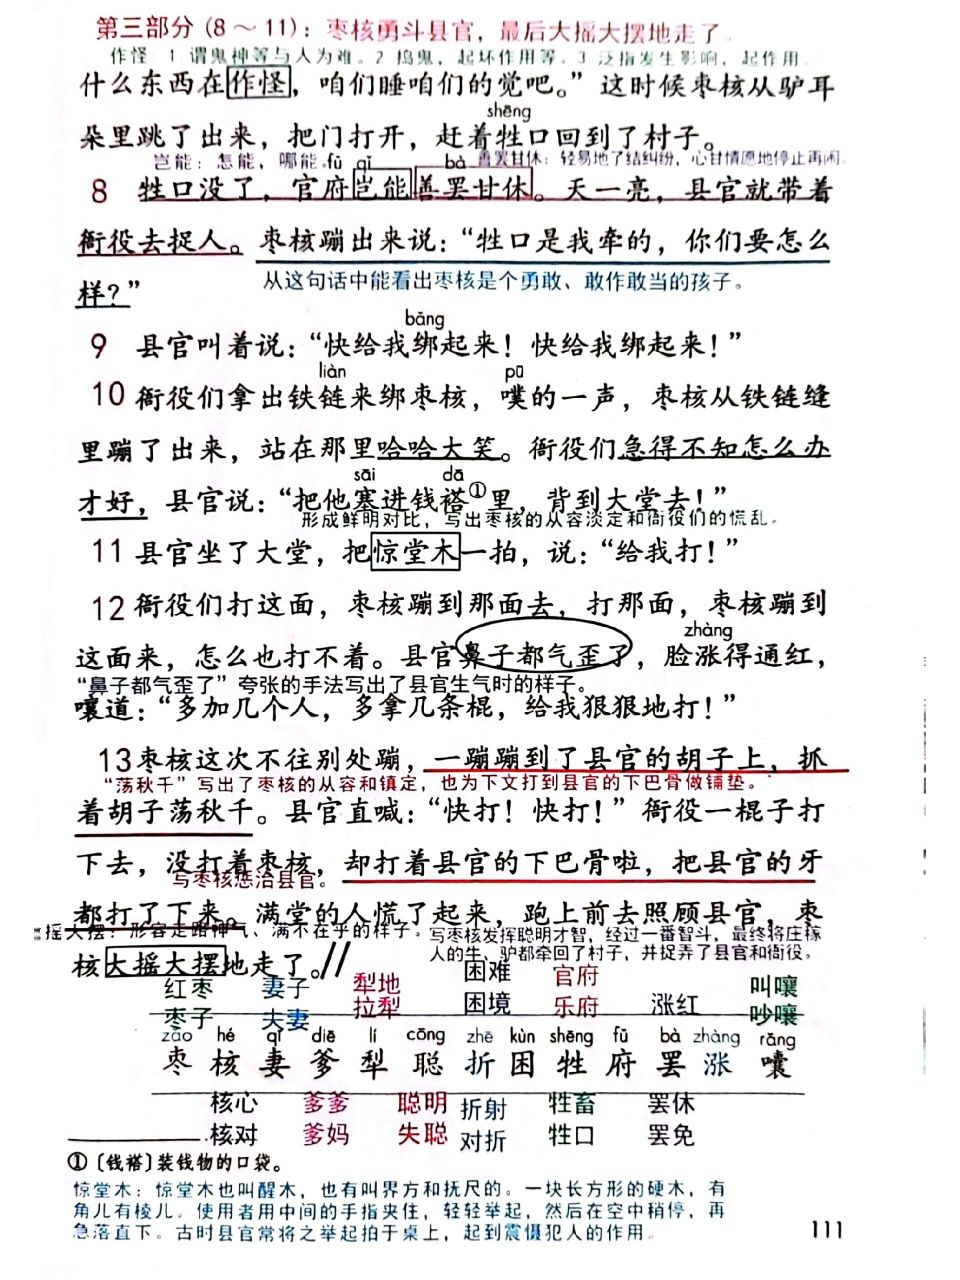 第三部分(8～11)：枣核勇斗县官，最后大摇大摆地走了。
作怪：1.谓鬼神等与人为难。2 捣鬼，起坏作用等。3 泛指发生影响，起作用。
什么东西在作怪，咱们睡咱们的觉吧。”这时候枣核从驴耳
shēng
朵里跳了出来，把门打开，赶着牲口回到了村子。
岂能：怎能，哪能。fǔ qǐ bà 善罢甘休：轻易地了结纠纷，心甘情愿地停止再闹。
8 牲口没了，官府岂能善罢甘休。天一亮，县官就带着
衙役去捉人。枣核蹦出来说：“牲口是我牵的，你们要怎么
从这句话中能看出枣核是个勇敢、敢作敢当的孩子。
样？”
bǎng
9 县官叫着说：“快给我绑起来！快给我绑起来！”
liàn pū
10 衙役们拿出铁链来绑枣核，噗的一声，枣核从铁链缝
里蹦了出来，站在那里哈哈大笑。衙役们急得不知怎么办
sāi dā
才好，县官说：“把他塞进钱褡①里，背到大堂去！”
形成鲜明对比，写出枣核的从容淡定和衙役们的慌乱。
11 县官坐了大堂，把惊堂木一拍，说：“给我打！”
12 衙役们打这面，枣核蹦到那面去，打那面，枣核蹦到
zhàng
这面来，怎么也打不着。县官鼻子都气歪了，脸涨得通红，
“鼻子都气歪了”夸张的手法写出了县官生气时的样子。
嚷道：“多加几个人，多拿几条棍，给我狠狠地打！”
13 枣核这次不往别处蹦，一蹦蹦到了县官的胡子上，抓
“荡秋千”写出了枣核的从容和镇定，也为下文打到县官的下巴骨做铺垫。
着胡子荡秋千。县官直喊：“快打！快打！”衙役一棍子打
下去，没打着枣核，却打着县官的下巴骨啦，把县官的牙
写枣核惩治县官。
都打了下来。满堂的人慌了起来，跑上前去照顾县官，枣
摇大摆：形容走路神气、满不在乎的样子。
写枣核发挥聪明才智，经过一番智斗，最终将庄稼
人的牛、驴都牵回了村子，并捉弄了县官和衙役。
核大摇大摆地走了。
红枣 妻子 犁地 困难 官府 叫嚷
枣子 夫妻 拉犁 困境 乐府 涨红 吵嚷
zǎo hé qī diē lí cōng zhē kùn shēng fǔ bà zhàng rǎng
枣 核 妻 爹 犁 聪 折 困 牲 府 罢 涨 嚷
核心 爹爹 聪明 折射 牲畜 罢休
核对 爹妈 失聪 对折 牲口 罢免
①〔钱褡〕装钱物的口袋。
惊堂木：惊堂木也叫醒木，也有叫界方和抚尺的。一块长方形的硬木，有
角儿有棱儿。使用者用中间的手指夹住，轻轻举起，然后在空中稍停，再
急落直下。古时县官常将之举起拍于桌上，起到震慑犯人的作用。
111